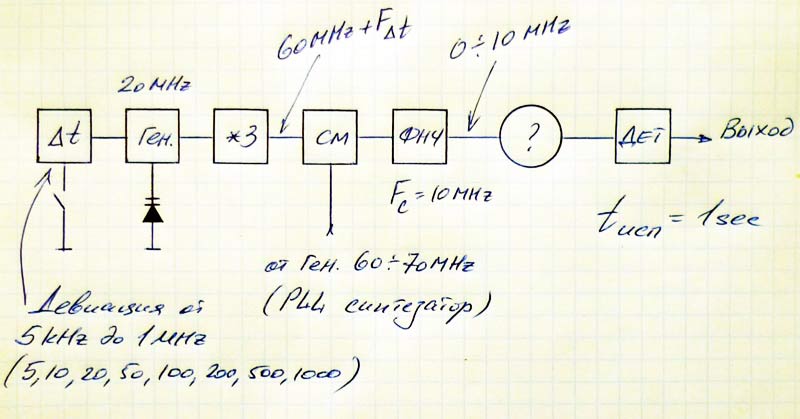 60MHz + FΔt
0÷10 MHz
20MHz
Δt
Ген.
*3
СМ
ФНЧ
?
ДЕТ
Выход
Fc = 10MHz
tисп = 1sec
от Ген. 60÷70MHz
(PLL синтезатор)
Девиация от
5kHz до 1MHz
(5, 10, 20, 50, 100, 200, 500, 1000)